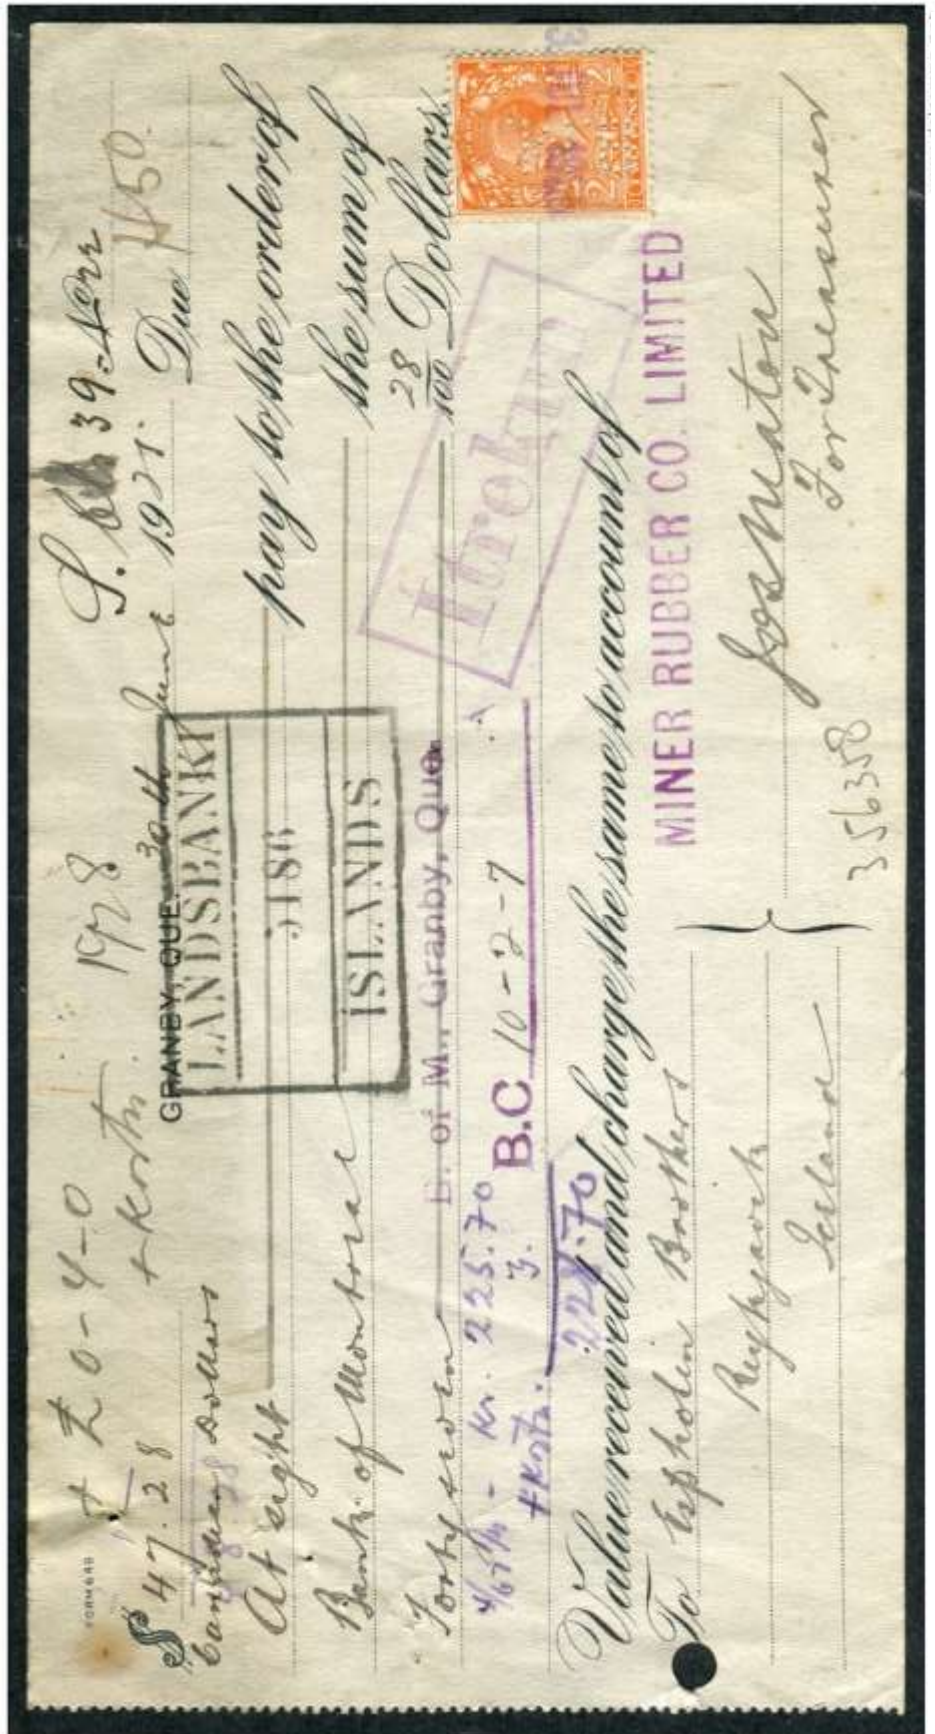 FORM 648
+ £0-4-0
+ Kostn. 1928
39
$ 47.28
Canadian Dollars
GRANBY, QUE. 30th June 1925. Due
450.
LANDSBANKI
ISLANDS
At sight pay to the order of
Bank of Montreal the sum of
Forty seven 28/100 Dollars
B. of M., Granby, Que.
Kr. 225.70
B.C. 10-2-7
+ Kostn. 3.
228.70
TWO PENCE
Value received and charge the same to account of
MINER RUBBER CO. LIMITED
To Espholin Brothers
Reykjavik
Iceland
For Treasurer
356358